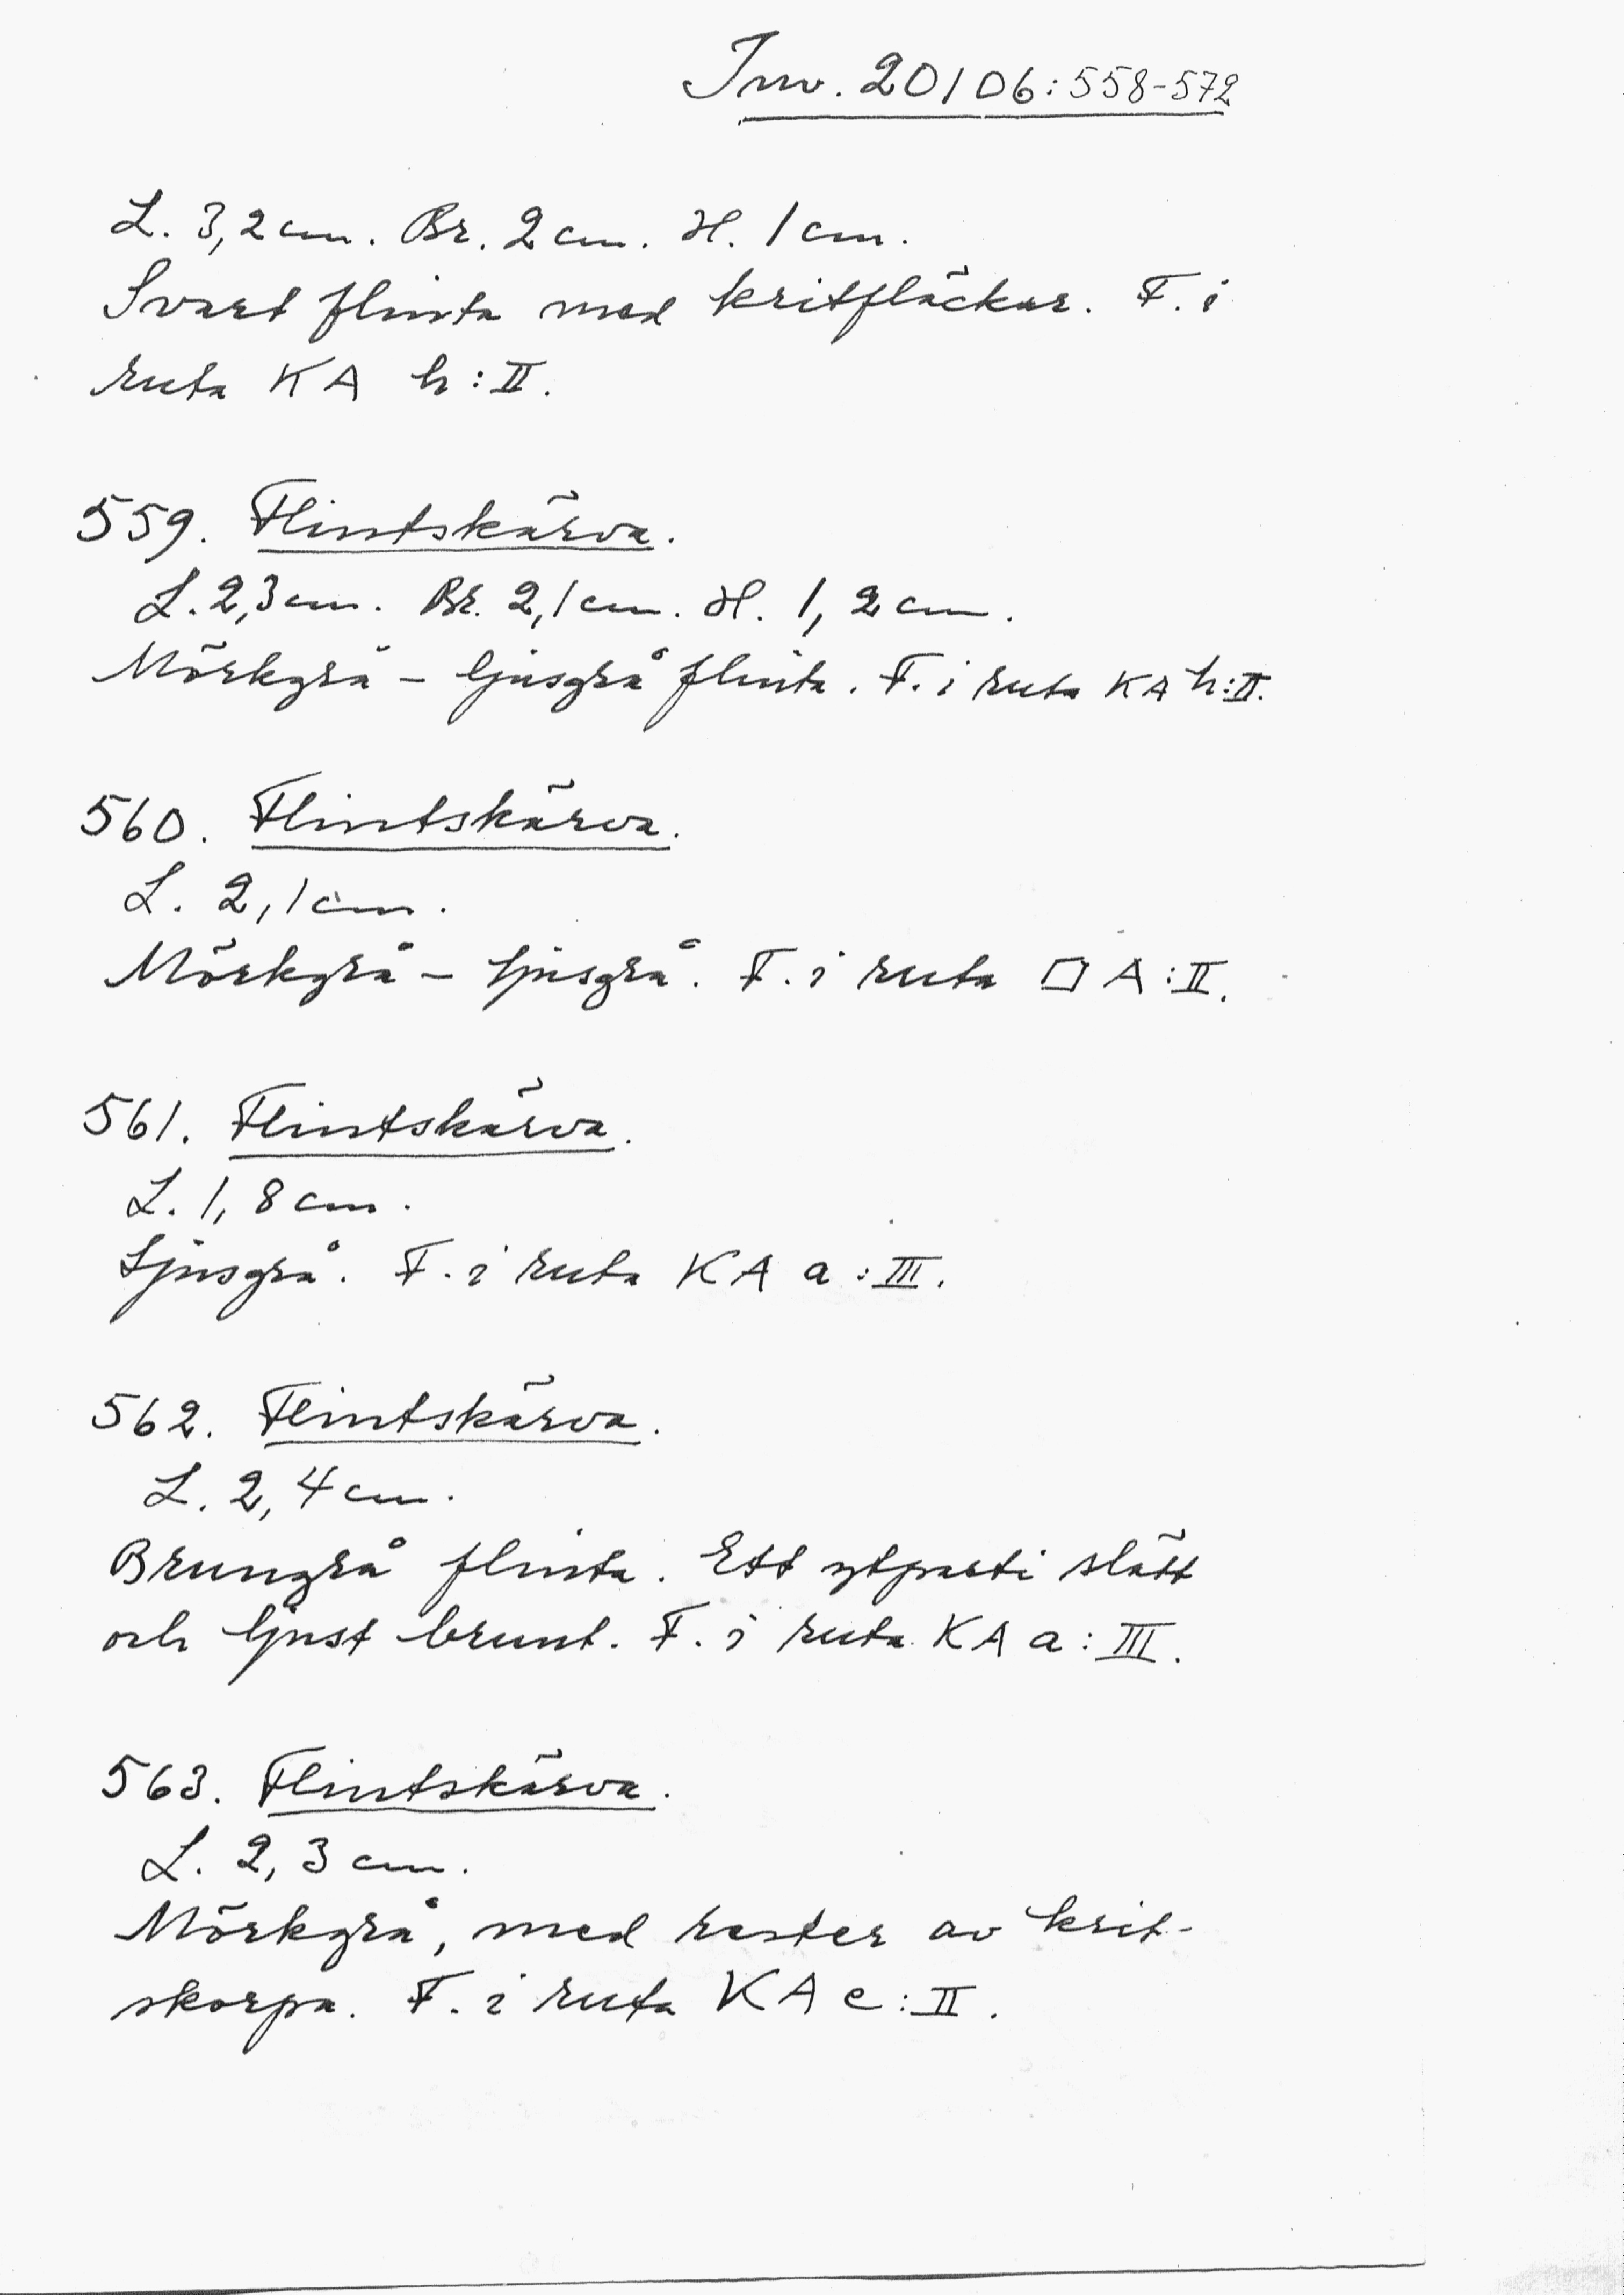 Inv. 20106:558-572
L. 3,2 cm. Br. 2 cm. H. 1 cm.
Svart flinta med kritfläckar. F. i
ruta KA h:II.
559. Flintskärva.
L. 2,3 cm. Br. 2,1 cm. H. 1,2 cm.
Mörkgrå - ljusgrå flinta. F. i ruta KA h:II.
560. Flintskärva.
L. 2,1 cm.
Mörkgrå - ljusgrå. F. i ruta □ A:II.
561. Flintskärva.
L. 1,8 cm.
Ljusgrå. F. i ruta KA a:III.
562. Flintskärva.
L. 2,4 cm.
Brungrå flinta. Ett ytparti slätt
och ljust brunt. F. i ruta KA a:III.
563. Flintskärva.
L. 2,3 cm.
Mörkgrå, med rester av krit-
skorpa. F. i ruta KA e:II.